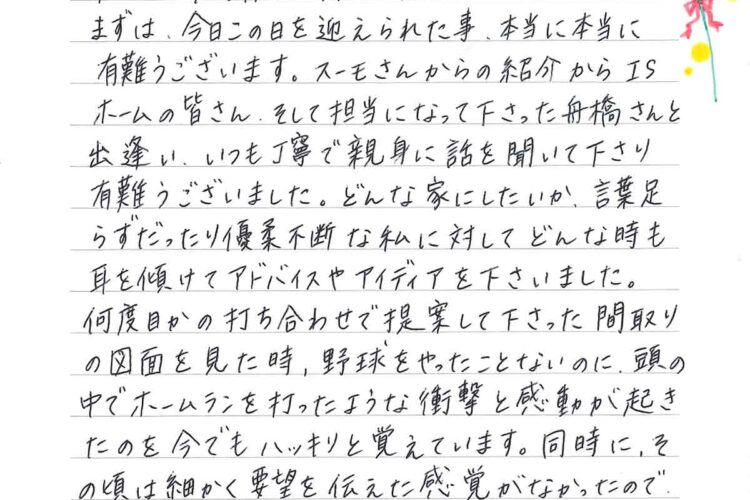 まずは、今日この日を迎えられた事、本当に本当に
有難うございます。スーモさんからの紹介からIS
ホームの皆さん、そして担当になって下さった舟橋さんと
出逢い、いつも丁寧で親身に話を聞いて下さり
有難うございました。どんな家にしたいか、言葉足
らずだったり優柔不断な私に対してどんな時も
耳を傾けてアドバイスやアイディアを下さいました。
何度目かの打ち合わせで提案して下さった間取り
の図面を見た時、野球をやったことないのに、頭の
中でホームランを打ったような衝撃と感動が起き
たのを今でもハッキリと覚えています。同時に、そ
の頃は細かく要望を伝えた感覚がなかったので、